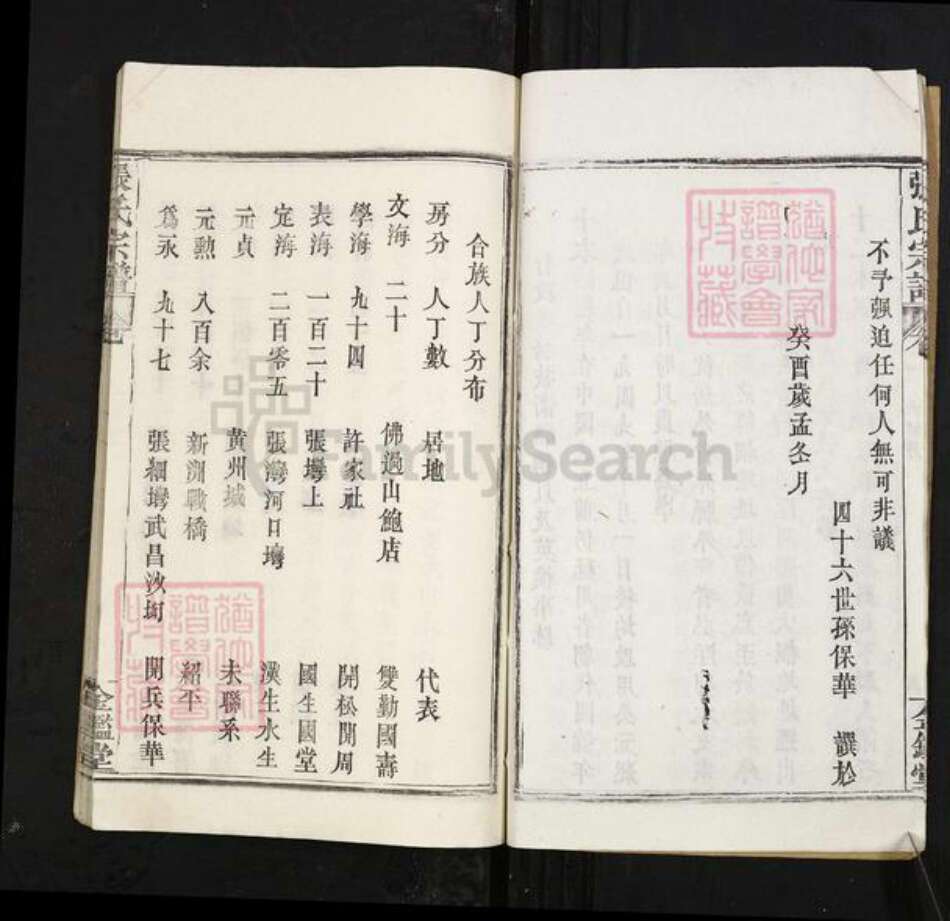 張氏宗譜
不予强迫任何人無可非議
四十六世孫保華 譔於
癸酉歲孟冬月
金鑑堂
猶他家譜學會特藏
合族人丁分布
房分 人丁數 居地 代表
文海 二十 佛過山鮑店 雙勤國壽
學海 九十四 許家社 開松開周
表海 一百二十 張塆上 國生國堂
定海 二百零五 張灣河口塆 漢生水生
元貞 黄州城 未聯系
元勲 八百余 新洲戰橋 紹平
爲永 九十七 張細塆武昌沙坰 開兵保華
張氏宗譜
金鑑堂
猶他家譜學會特藏
FamilySearch